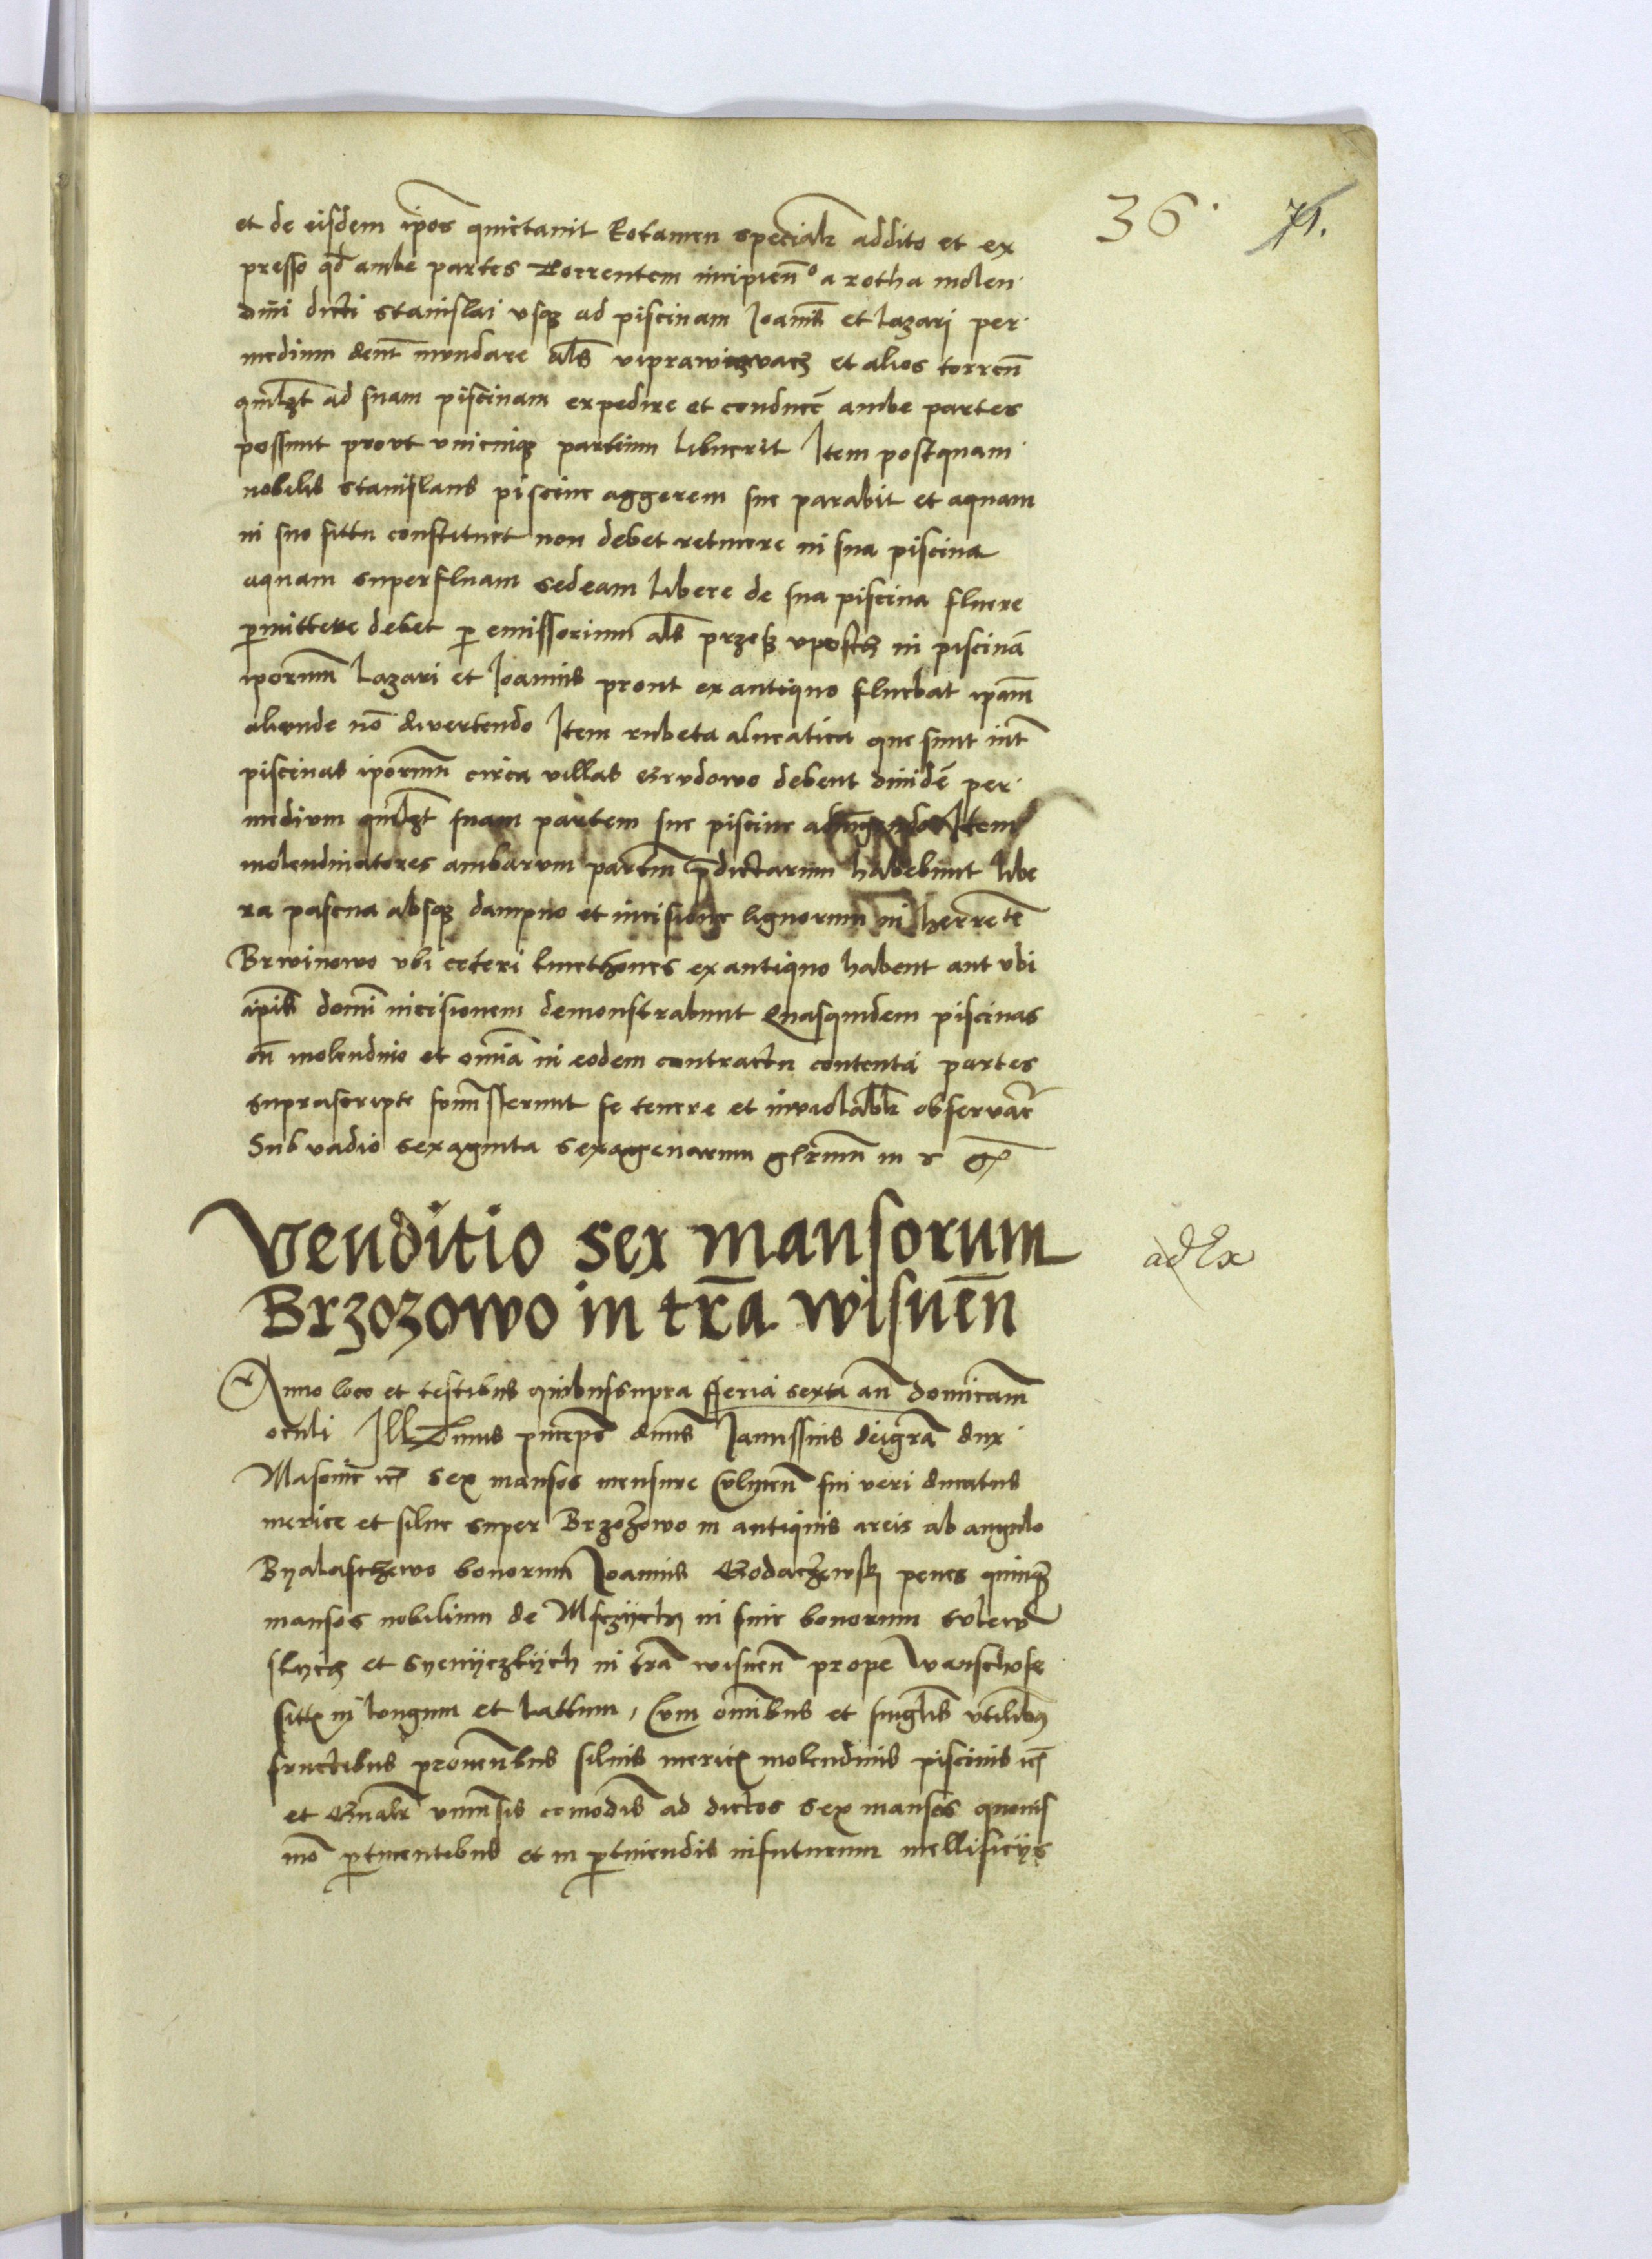 36. 71.
et de eisdem ipos quictavit Eotamen specialr addito et ex
presso qd ambe partes torrentem incipien a rotha molen
dini dicti Stanislai vsq ad piscinam Joanis et Lazari per
medium dent mundare als viprawizvacz et alios torren
quilzt ad suam piscinam expedire et conducē ambe partes
possunt provt vnicuiq partium libuerit Item postquam
nobilis Stanislaus piscine aggerem sue parabit et aquam
in suo sittu constituet non debet retinere in sua piscina
aquam superfluam sedeam libere de sua piscina fluere
pmittere debet p emissorium als przesz vposth in piscinā
iporum Lazari et Joannis prout ex antiquo fluebat ipam
aliunde nō divertendo Item rubeta alneatica que sunt int
piscinas iporum circa villas Grvdowo debent dividē per
medivm quilzt suam partem sue piscine Item
molendinatores ambarvm partium pdictarum habebunt libe
ra pascua absq dampno et incisione lignorum in
Brwinowo vbi ceteri kmethones ex antiquo habent aut vbi
ipis domi incisionem demonstrabunt Quasquidem piscinas
cū molendino et omia in eodem contractu contenta partes
suprascripte se tenere et inviolablr observare
Sub vadio sexaginta sexagenarum in
Venditio sex mansorum
Brzozowo in trā wisnēn
ad Ex
Anno loco et testibus quibussupra fferia sexta an domicam
oculi Illmus pnceps dnus Janussius deigrā dux
Masovie sex mansos mensure Culmen sui veri ducatus
merice et silue super Brzozowo in antiquis areis ab angulo
Byalaschewo bonorum Joannis Grodaczewsky penes quinq
mansos nobilium de Msczijch in fine bonorum
slych et Syenyczkijch in trā wisnen prope Wanschosze
sittos in longum et lattum, Cum omibus et singlis vtilibus
fructibus provenbus siluis mericis molendinis piscinis
et Gnalr comodis ad dictos sex mansos quouis
mō ptinentibus et in ptinendis infuturum mellificijs